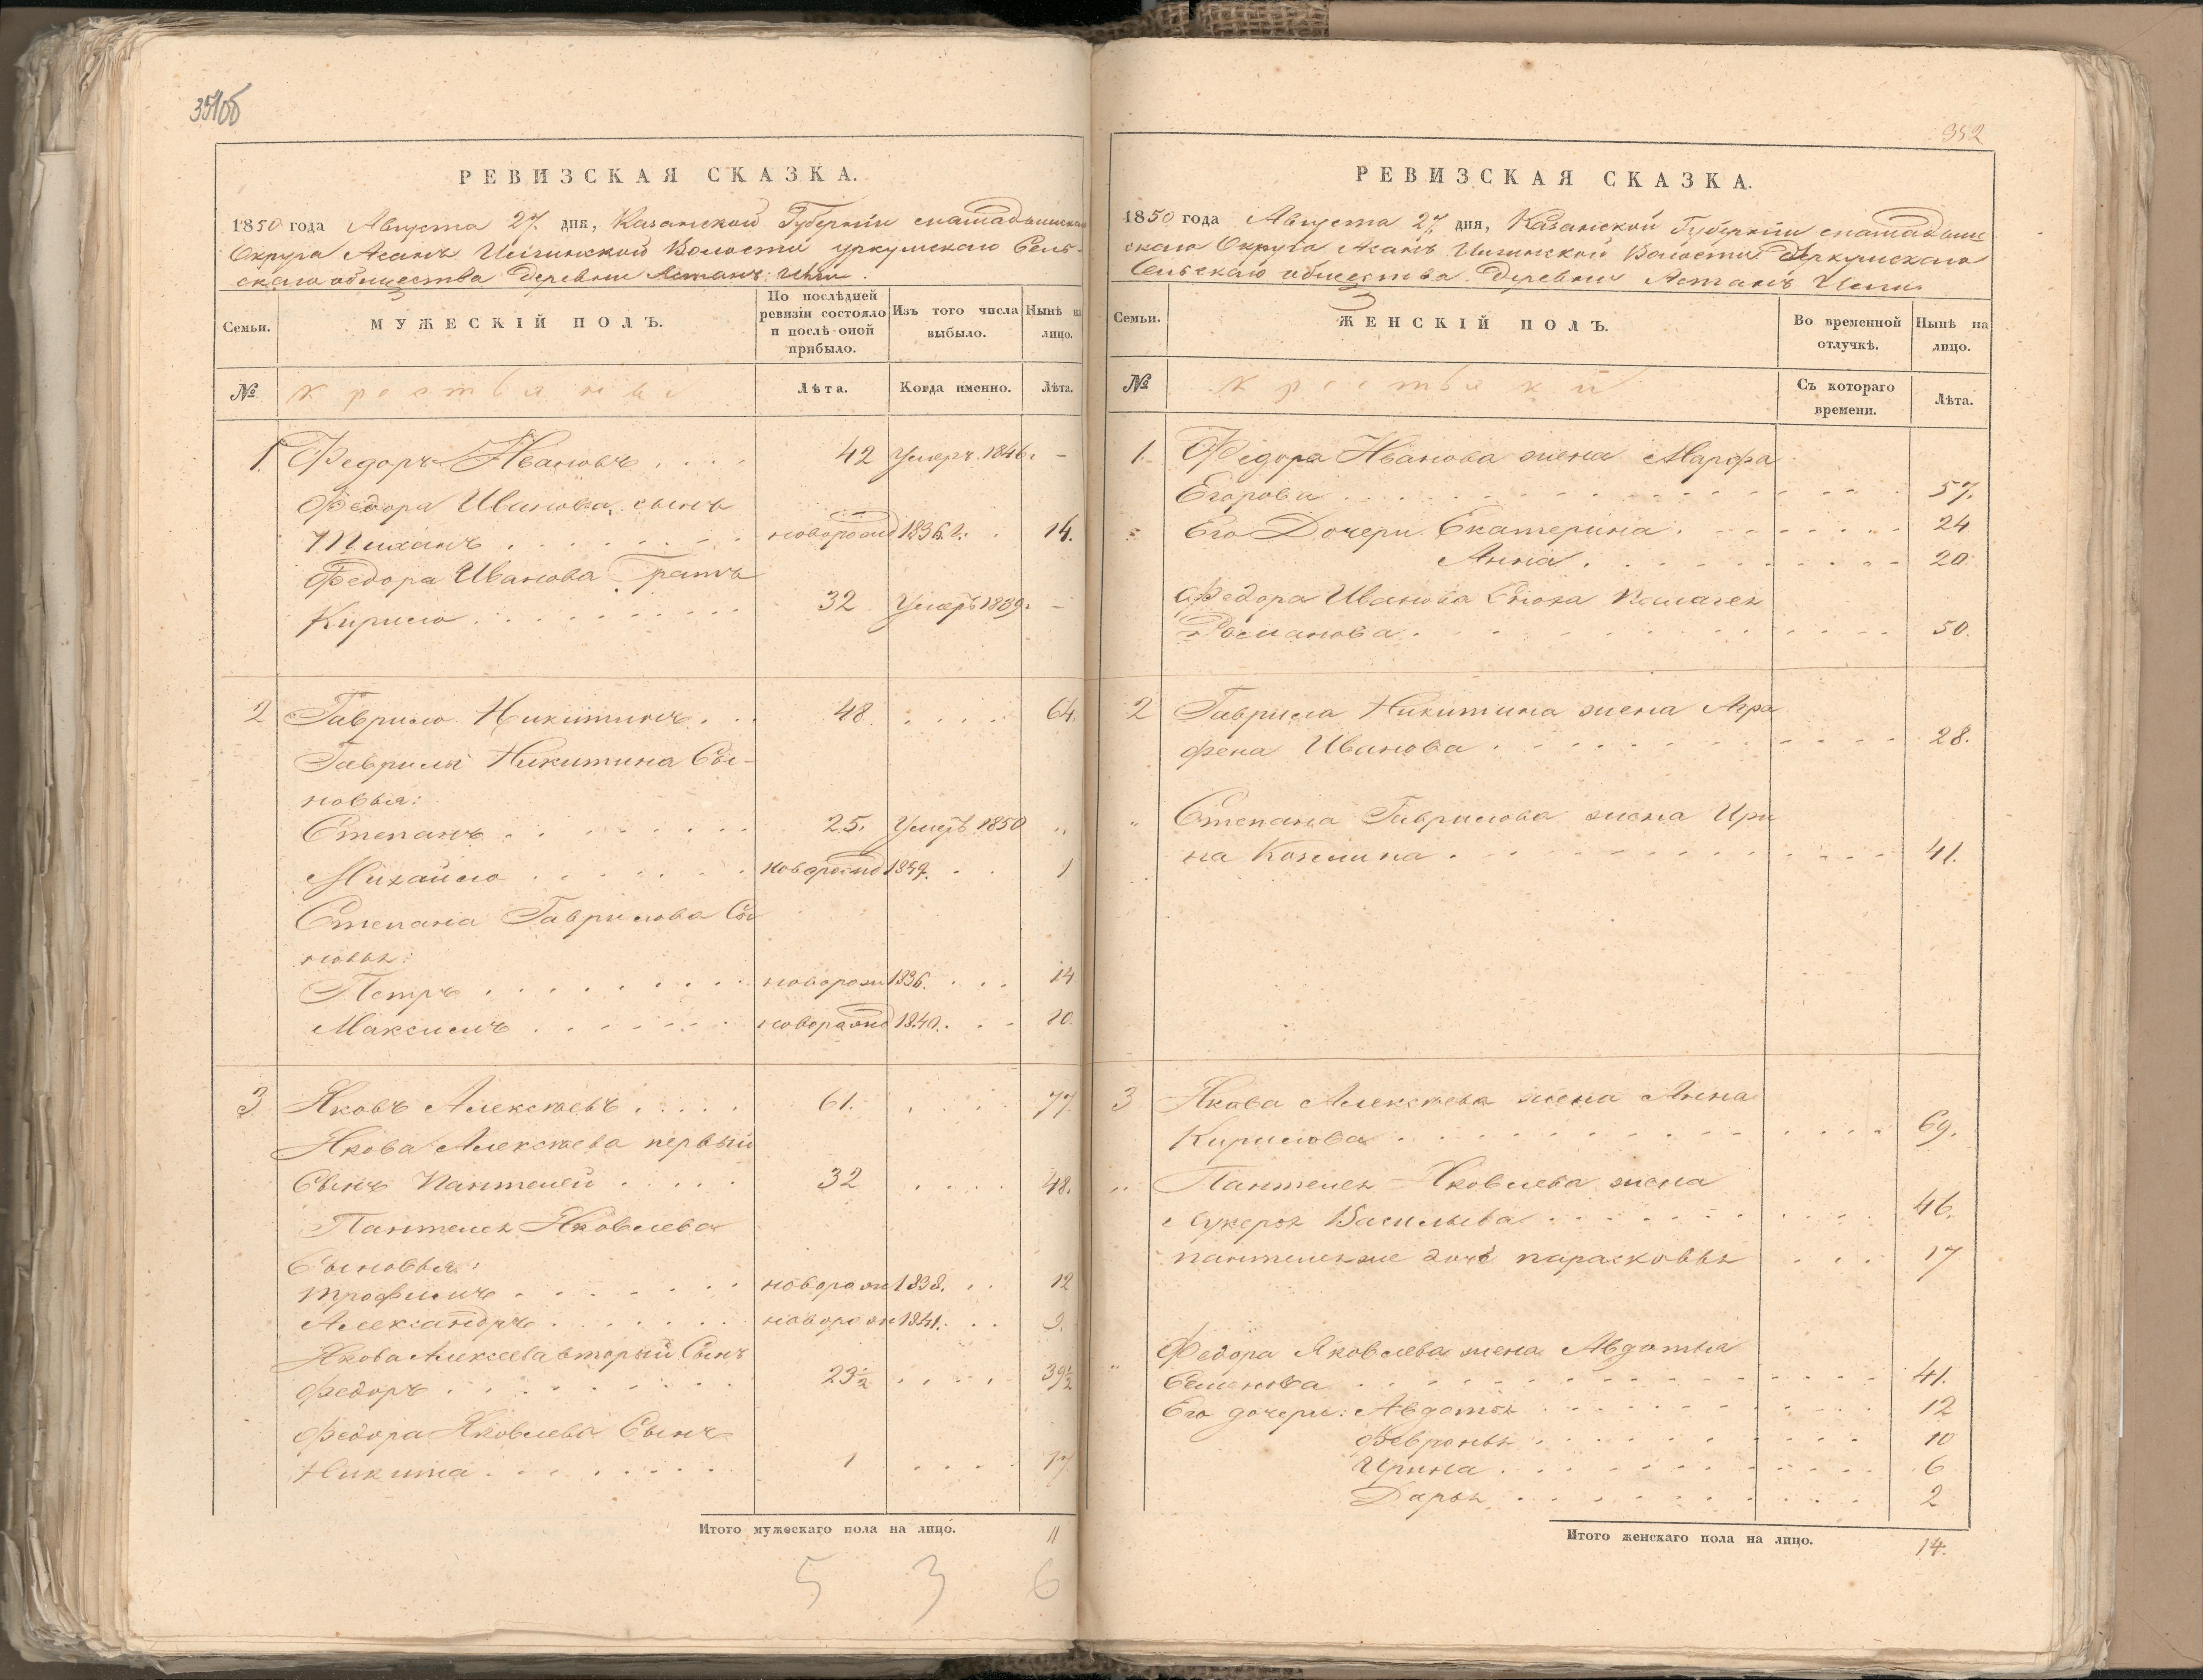 351об
РЕВИЗСКАЯ СКАЗКА.
1850 года Августа 27. дня, Казанской Губерніи
Округа Асанъ Волости Сель-
скаго общества Деревни Астанъ
Семьи.
МУЖЕСКІЙ ПОЛЪ.
По послѣдней ревизіи состояло и послѣ оной прибыло.
Изъ того числа выбыло.
Нынѣ на лицо.
№
крестьяне
Лѣта.
Когда именно.
Лѣта.
1. Федоръ Ивановъ . . . . 42 Умеръ 1846. -
Федора Иванова сынъ
новорожд 1836 г. . 14.
Федора Иванова
Кирило . . . . . . . . 32 Умеръ 1839. -
2 Гаврило Никитинъ . . . 48. . . . . 64.
Гаврилы Никитина Сы-
новья:
Степанъ . . . . . . . . 25. Умеръ 1850 „
Михайло . . . . . . новорожд 1849. . . 1
Степана Гаврилова Сы
новья:
Петръ . . . . . . . . . новорож 1836. . . . 14
Максимъ . . . . . . . новорожд 1840. . . 10.
3 Яковъ Алексѣевъ . . . . 61. . . . 77.
Якова Алексѣева первый
Сынъ Пантелей . . . . . 32 . . . . 48.
Пантелея Яковлева
Сыновья:
Трофимъ . . . . . . . новорож 1838. . . 12
Александръ . . . . . . . новорож 1841. . . 9.
Якова Алексѣева вторый Сынъ
Федоръ . . . . . . . . 23½ . . . . 39½
Федора Яковлева Сынъ
Никита . . . . . . . . 1 . . . . 17.
Итого мужескаго пола на лицо. 11
5 3 6
352
РЕВИЗСКАЯ СКАЗКА.
1850 года Августа 27 дня, Казанской Губерніи
скаго Округа Асанъ Волости
Сельскаго общества Деревни Астанъ
Семьи.
ЖЕНСКІЙ ПОЛЪ.
Во временной отлучкѣ.
Нынѣ на лицо.
№
крестьянки
Съ котораго времени.
Лѣта.
1. Федора Иванова жена Марфа
Егорова . . . . . . . . . . . . 57.
Его Дочери Екатерина . . . . . . . 24
Анна . . . . . . . . . . 20
Федора Иванова
. . . . . . . . . . 50.
2 Гаврила Никитина жена Агра
фена Иванова . . . . . . . . . . 28.
„ Степана Гаврилова жена Ири
на . . . . . . . . . . . . 41.
3 Якова Алексѣева жена Анна
Кирилова . . . . . . . . . . . . 69.
„ Пантелея Яковлева жена
Лукерья Васильева . . . . . . . . . 46.
пантелея же дочь парасковья . . . 17
„ Федора Яковлева жена Авдотья
Семенова . . . . . . . . . . . . 41.
Его дочери: Авдотья . . . . . . . . . 12
Февронья . . . . . . . . . 10
Ирина . . . . . . . . . . . 6
Дарья . . . . . . . . . . 2
Итого женскаго пола на лицо. 14.